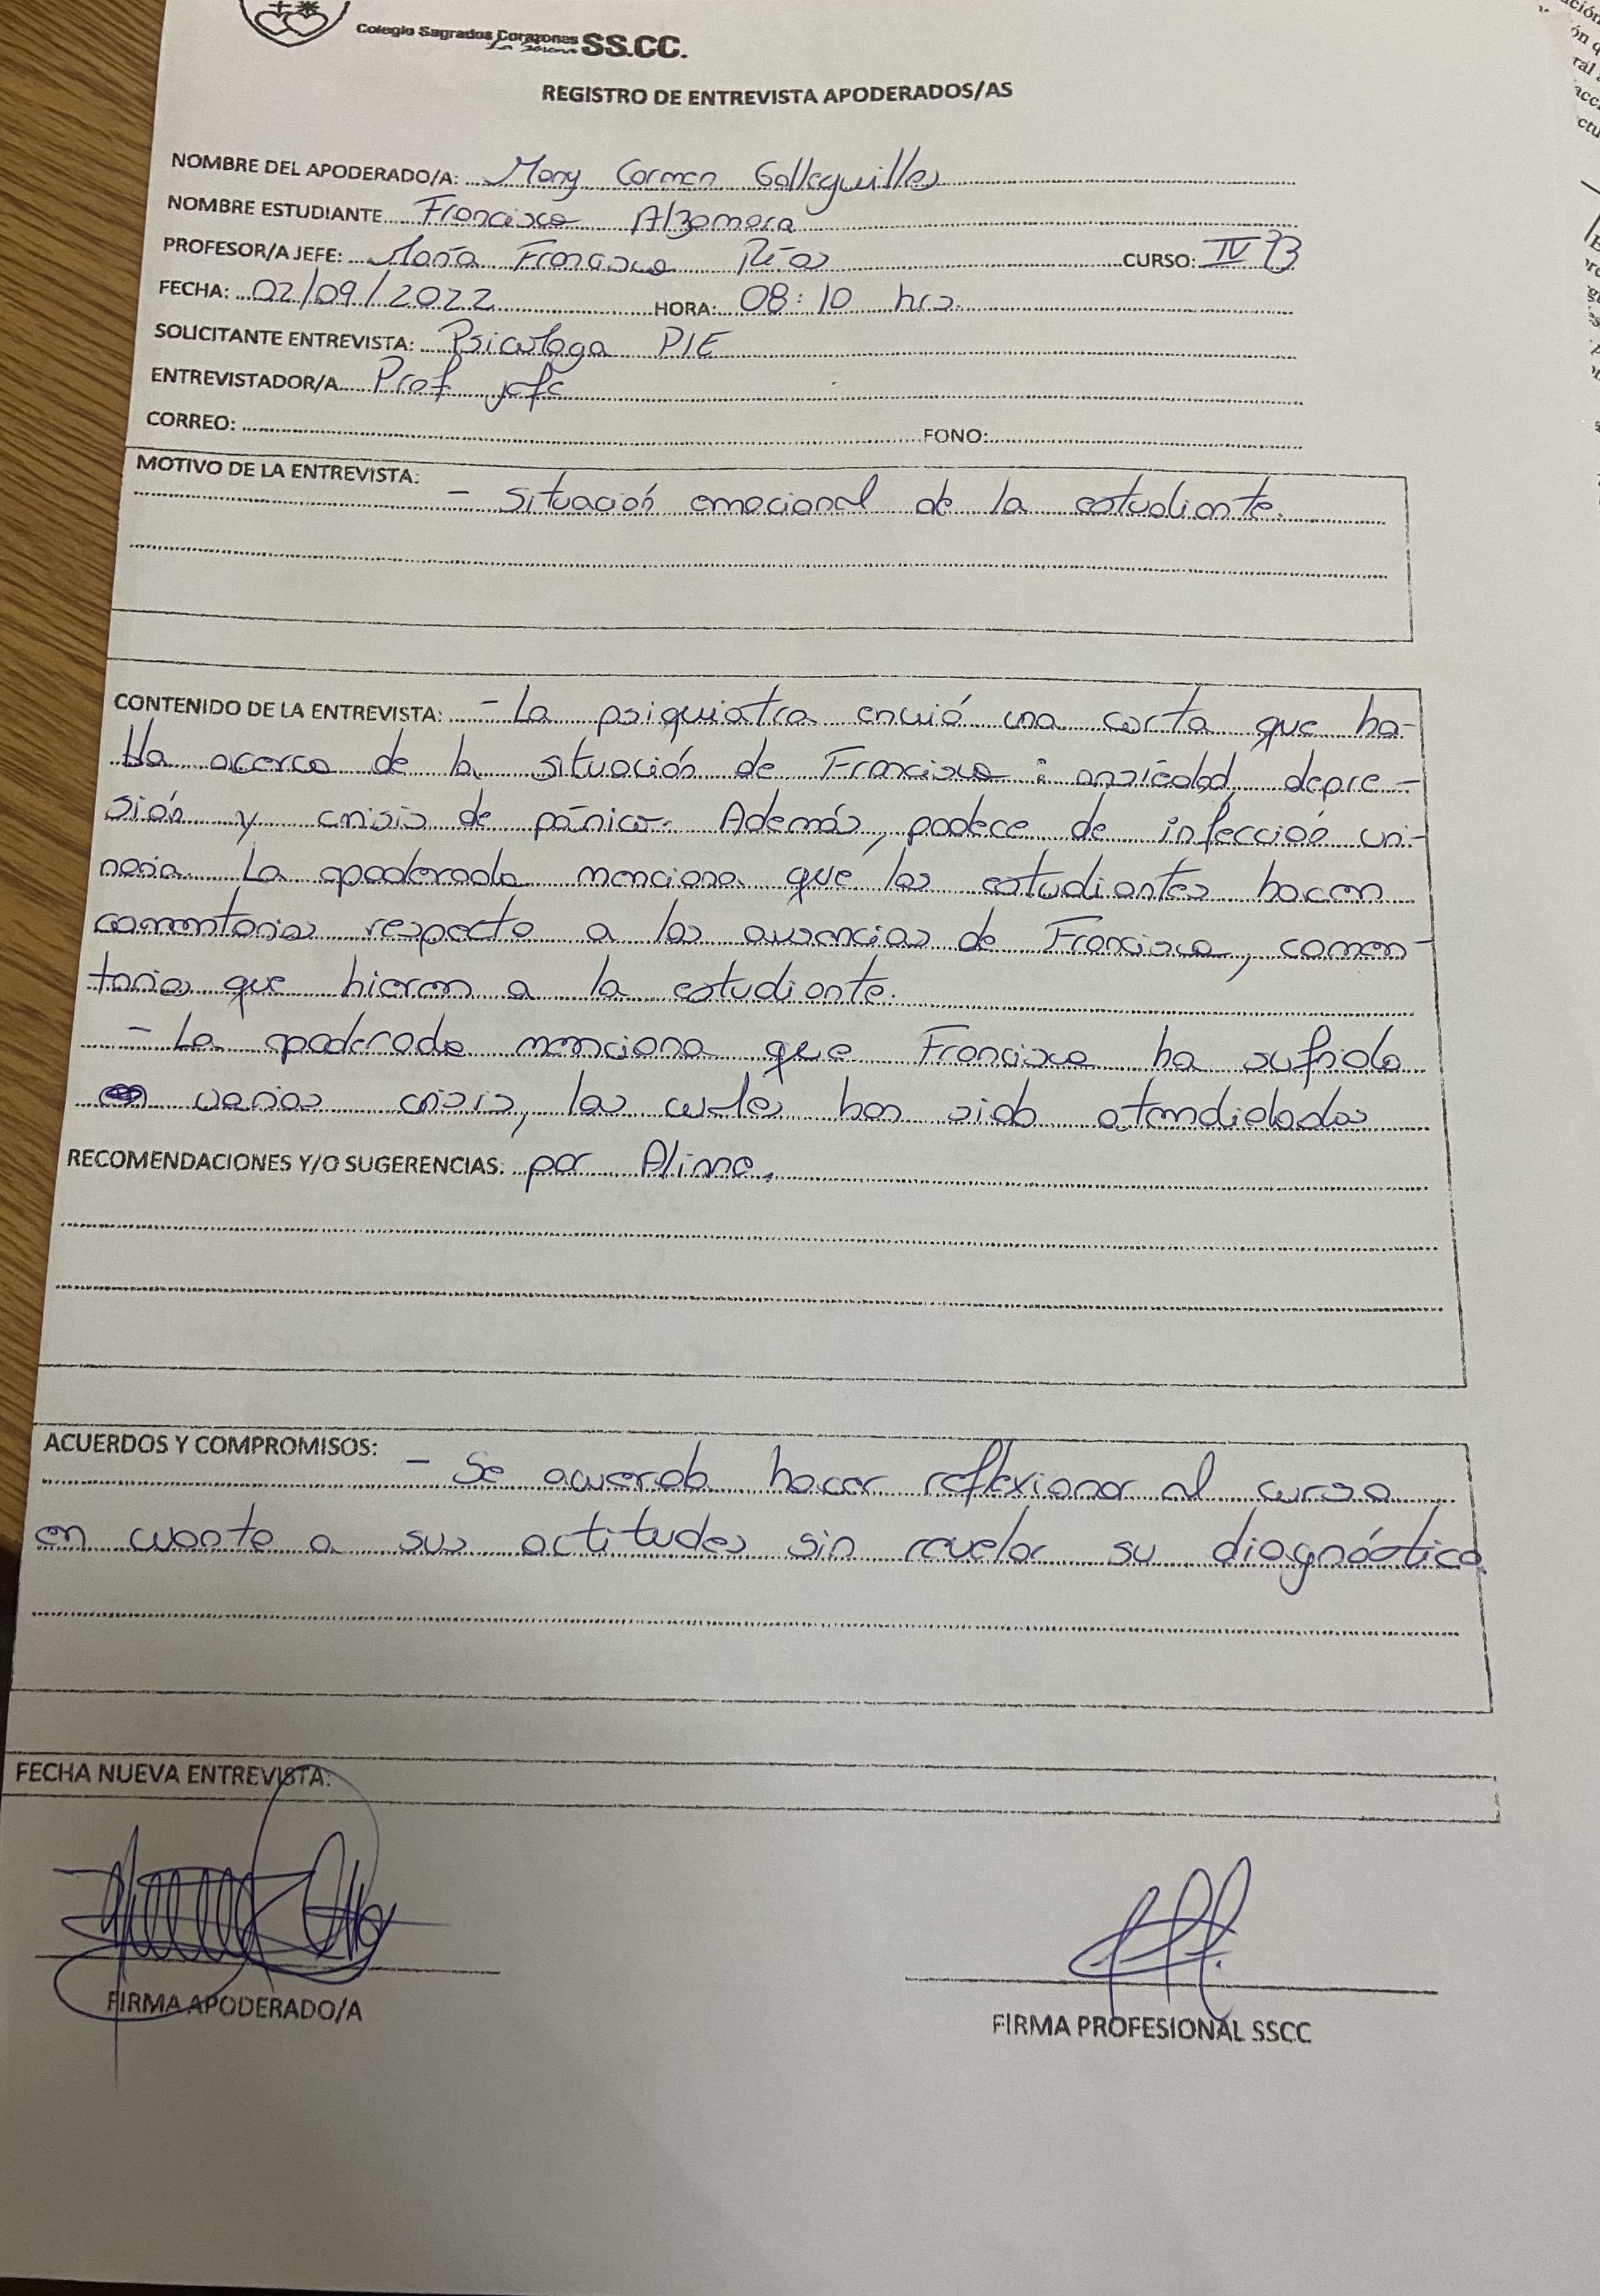 Colegio Sagrados Corazones SS.CC.
La Serena
REGISTRO DE ENTREVISTA APODERADOS/AS
NOMBRE DEL APODERADO/A: Mary Carmen Galleguillos
NOMBRE ESTUDIANTE Francisca Alzamora
PROFESOR/A JEFE: María Francisca Ríos CURSO: IV B
FECHA: 02/09/2022 HORA: 08:10 hrs.
SOLICITANTE ENTREVISTA: Psicóloga PIE
ENTREVISTADOR/A Prof jefe
CORREO: FONO:
MOTIVO DE LA ENTREVISTA: - situación emocional de la estudiante.
CONTENIDO DE LA ENTREVISTA: - La psiquiatra envió una carta que ha-
bla acerca de la situación de Francisca : ansiedad, depre-
sión y crisis de pánico. Además, padece de infección uri-
naria. La apoderada menciona que los estudiantes hacen
comentarios respecto a las ausencias de Francisca, comen-
tarios que hieren a la estudiante.
- La apoderada menciona que Francisca ha sufrido
varias crisis, las cules han sido atendidadas
RECOMENDACIONES Y/O SUGERENCIAS: por Alinne.
ACUERDOS Y COMPROMISOS: - Se acuerda hacer reflexionar al curso
en cuanto a sus actitudes sin revelar su diagnóstico.
FECHA NUEVA ENTREVISTA:
FIRMA APODERADO/A
FIRMA PROFESIONAL SSCC